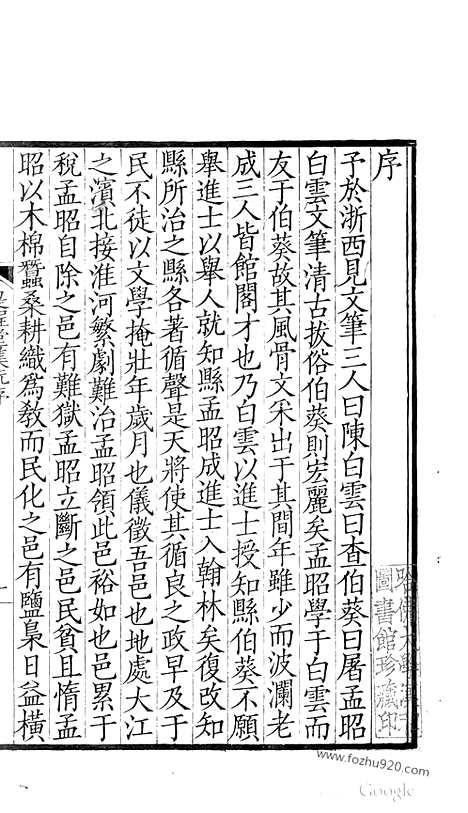 序
予於浙西見文筆三人曰陳白雲曰查伯葵曰屠孟昭
白雲文筆清古拔俗伯葵則宏麗矣孟昭學于白雲而
友于伯葵故其風骨文采出于其間年雖少而波瀾老
成三人皆館閣才也乃白雲以進士授知縣伯葵不願
舉進士以舉人就知縣孟昭成進士入翰林矣復改知
縣所治之縣各著循聲是天將使其循良之政早及于
民不徒以文學掩壯年歲月也儀徵吾邑也地處大江
之濱北接淮河繁劇難治孟昭領此邑裕如也邑累于
稅孟昭自除之邑有難獄孟昭立斷之邑民貧且惰孟
昭以木棉蠶桑耕織爲教而民化之邑有鹽梟日益橫
是程堂集阮序
一
哈佛大學漢和
圖書館珍藏印
www.fozhu920.com
Google